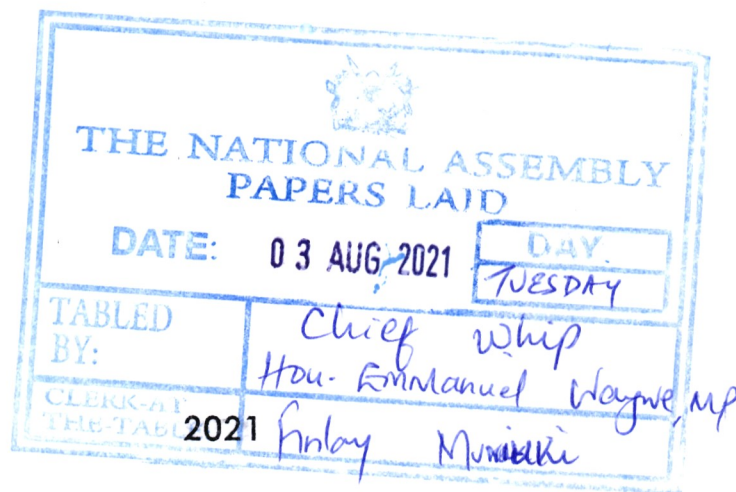 THE NATIONAL ASSEMBLY
PAPERS LAID
DATE: 03 AUG 2021
DAY.
TUESDAY
TABLED BY:
Chief Whip
Hon. Emmanuel Wangwe, MP
CLERK-AT THE-TABLE
2021
Finlay